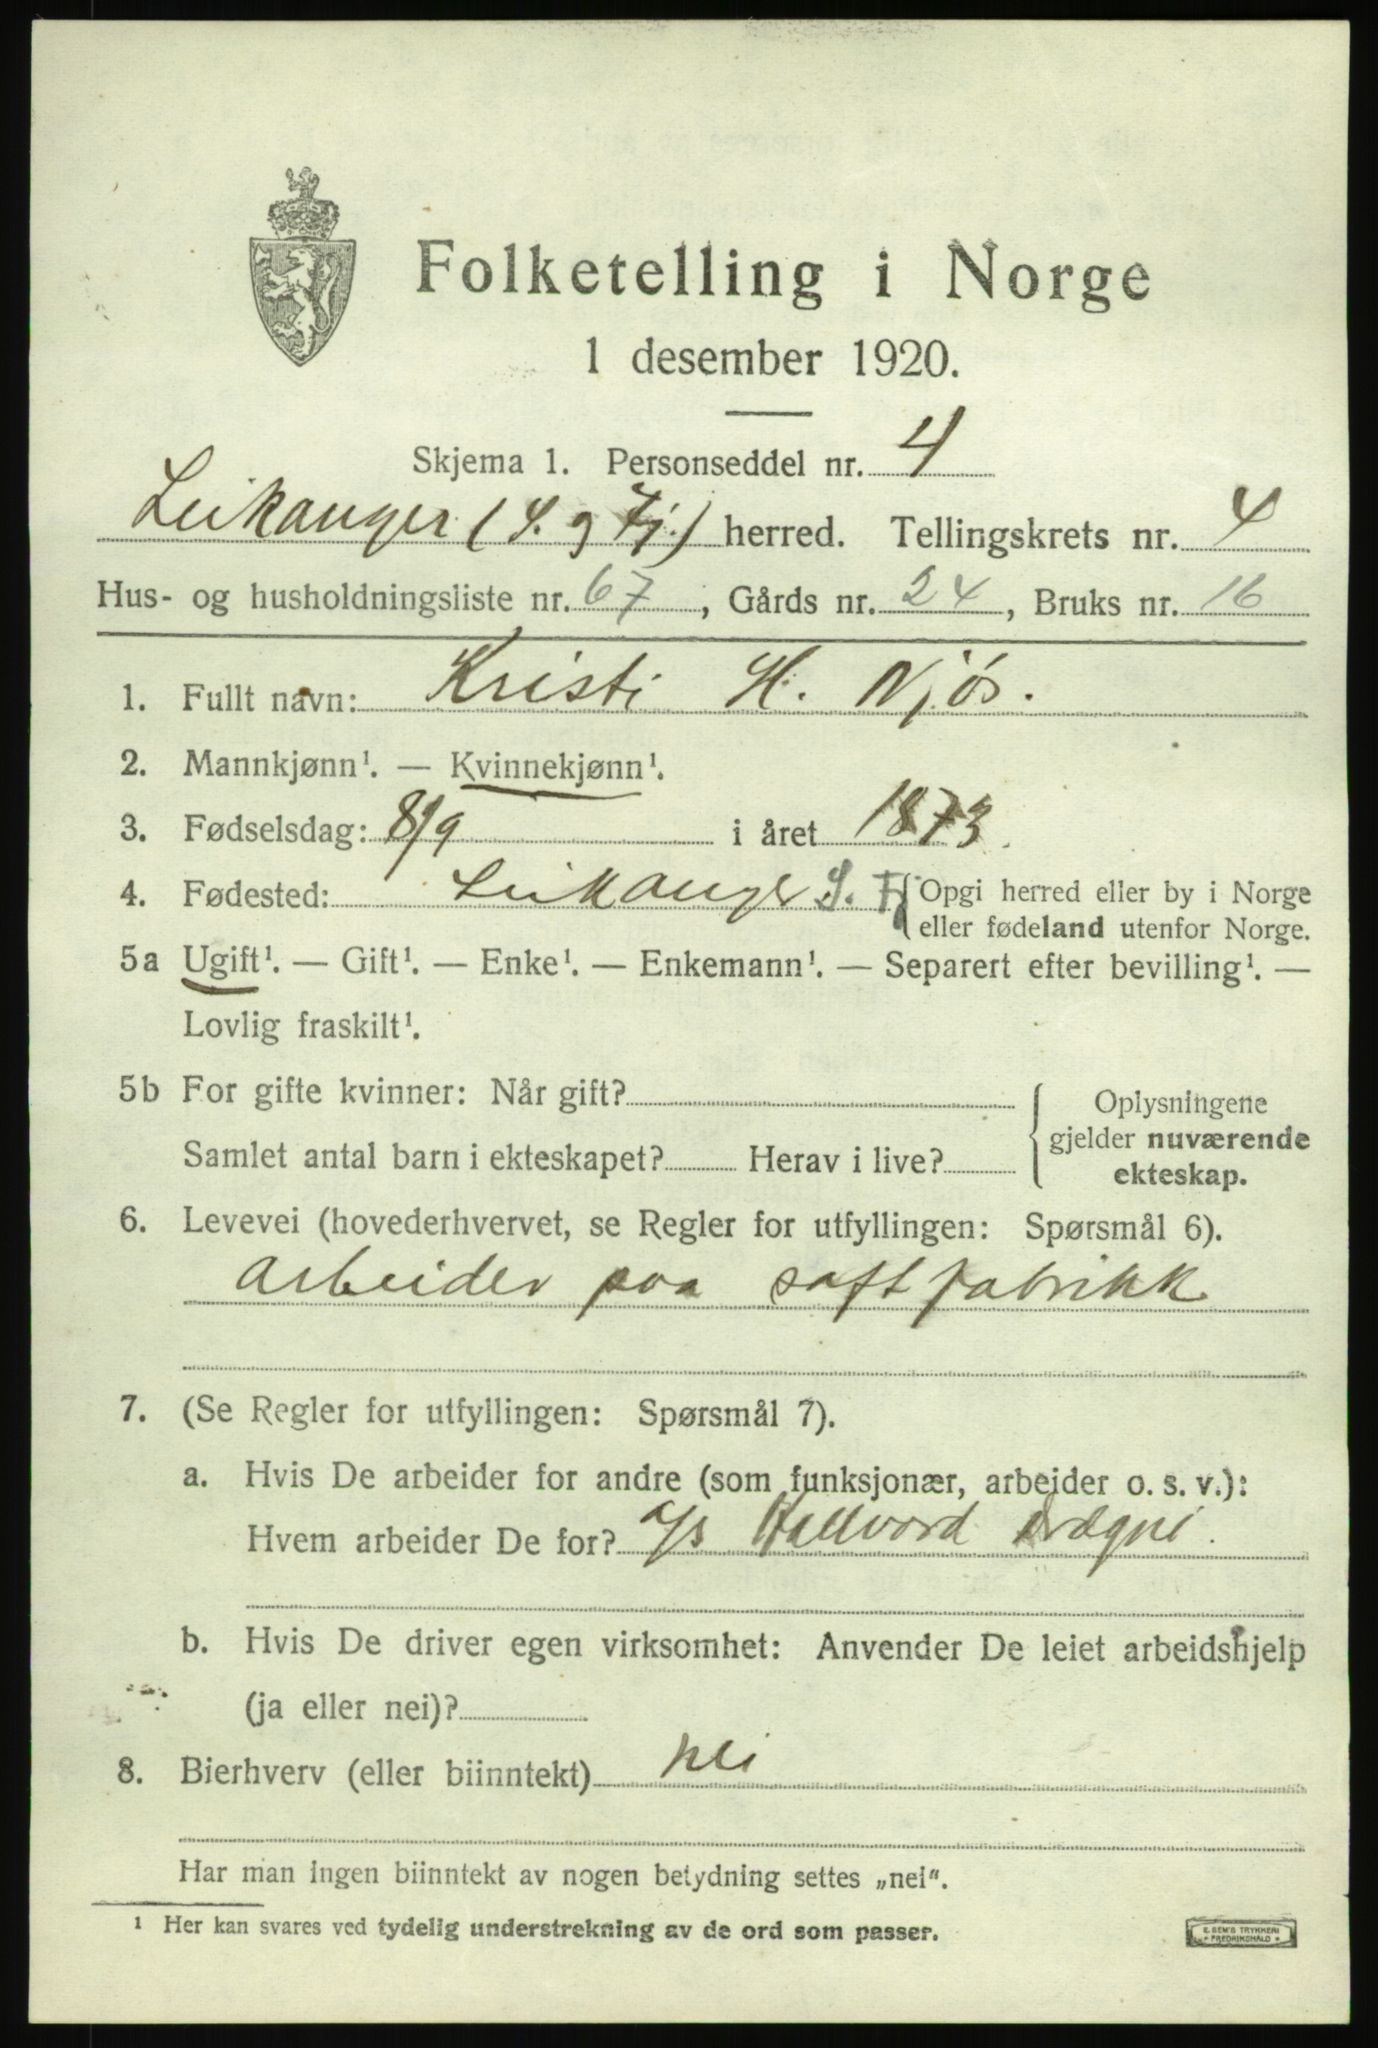 Folketelling i Norge
1 desember 1920.
Skjema 1. Personseddel nr. 4
Leikanger (S. og Fj.) herred. Tellingskrets nr. 4
Hus- og husholdningsliste nr. 67, Gårds nr. 24, Bruks nr. 16
1. Fullt navn: Kristi H. Njøs.
2. Mannkjønn¹. — Kvinnekjønn¹.
3. Fødselsdag: 8/9 i året 1873.
4. Fødested: Leikanger S. Fj { Opgi herred eller by i Norge
eller fødeland utenfor Norge.
5a Ugift¹. — Gift¹. — Enke¹. — Enkemann¹. — Separert efter bevilling¹. —
Lovlig fraskilt¹.
5b For gifte kvinner: Når gift?
Samlet antal barn i ekteskapet? Herav i live?
{ Oplysningene
gjelder nuværende
ekteskap.
6. Levevei (hovederhvervet, se Regler for utfyllingen: Spørsmål 6).
arbeider paa saftfabrikk
7. (Se Regler for utfyllingen: Spørsmål 7).
a. Hvis De arbeider for andre (som funksjonær, arbeider o. s. v.):
Hvem arbeider De for? a/s Hallvard Drægni.
b. Hvis De driver egen virksomhet: Anvender De leiet arbeidshjelp
(ja eller nei)?
8. Bierhverv (eller biinntekt) nei
Har man ingen biinntekt av nogen betydning settes „nei“.
¹ Her kan svares ved tydelig understrekning av de ord som passer.
E. SEM'S TRYKKERI
* FREDRIKSHALD *